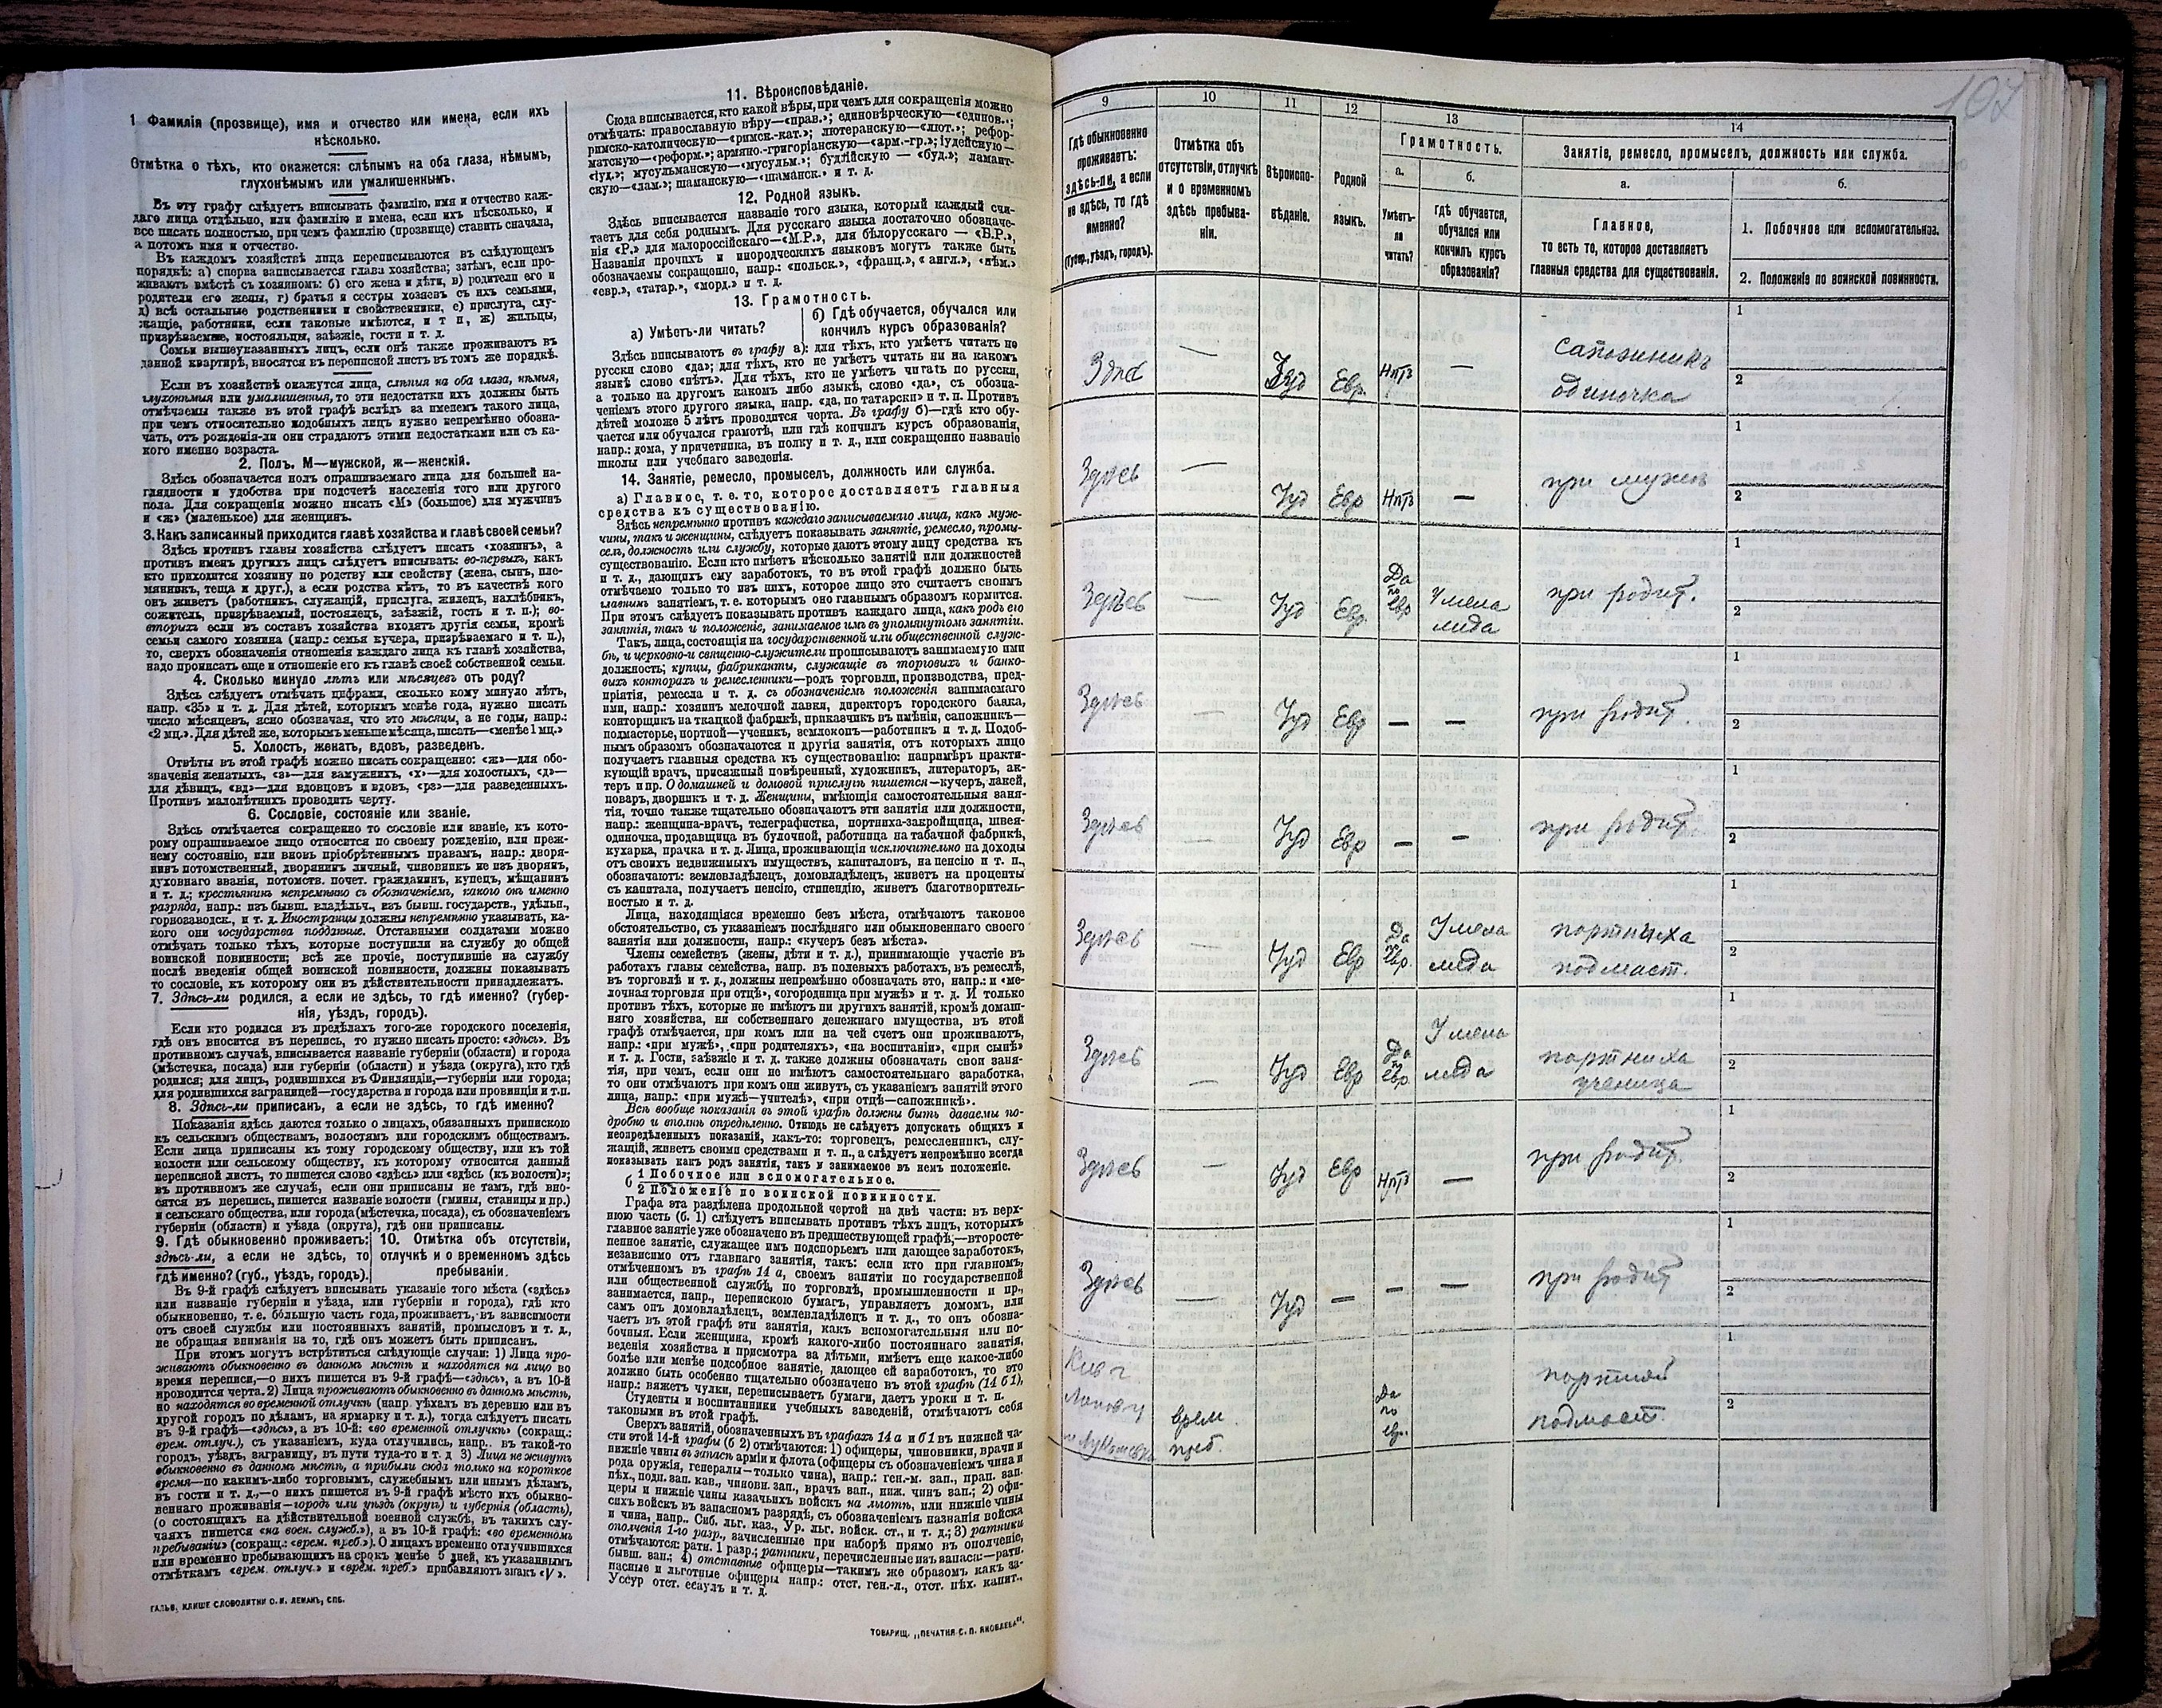 1 Фамилія (прозвище), имя и отчество или имена, если ихъ
нѣсколько.
Отмѣтка о тѣхъ, кто окажется: слѣпымъ на оба глаза, нѣмымъ,
глухонѣмымъ или умалишеннымъ.
Въ эту графу слѣдуетъ вписывать фамилію, имя и отчество каж-
даго лица отдѣльно, или фамилію и имена, если ихъ нѣсколько, и
все писать полностью, при чемъ фамилію (прозвище) ставить сначала,
а потомъ имя и отчество.
Въ каждомъ хозяйствѣ лица переписываются въ слѣдующемъ
порядкѣ: а) сперва записывается глава хозяйства; затѣмъ, если про-
живаютъ вмѣстѣ съ хозяиномъ: б) его жена и дѣти, в) родители его и
родители его жены, г) братья и сестры хозяевъ съ ихъ семьями,
д) всѣ остальные родственники и свойственники, е) прислуга, слу-
жащіе, работники, если таковые имѣются, и т п, ж) жильцы,
призрѣваемые, постояльцы, заѣзжіе, гости и т. д.
Семьи вышеуказанныхъ лицъ, если онѣ также проживаютъ въ
данной квартирѣ, вносятся въ переписной листъ въ томъ же порядкѣ.
Если въ хозяйствѣ окажутся лица, слѣпыя на оба глаза, нѣмыя,
глухонѣмыя или умалишенныя, то эти недостатки ихъ должны быть
отмѣчаемы также въ этой графѣ вслѣдъ за именемъ такого лица,
при чемъ относительно подобныхъ лицъ нужно непремѣнно обозна-
чать, отъ рожденія-ли они страдаютъ этими недостатками или съ ка-
кого именно возраста.
2. Полъ. М—мужской, ж—женскій.
Здѣсь обозначается полъ опрашиваемаго лица для большей на-
глядности и удобства при подсчетѣ населенія того или другого
пола. Для сокращенія можно писать «М» (большое) для мужчинъ
и «ж» (маленькое) для женщинъ.
3. Какъ записанный приходится главѣ хозяйства и главѣ своей семьи?
Здѣсь противъ главы хозяйства слѣдуетъ писать «хозяинъ», а
противъ именъ другихъ лицъ слѣдуетъ вписывать: во-первыхъ, какъ
кто приходится хозяину по родству или свойству (жена, сынъ, пле-
мянникъ, теща и друг.), а если родства нѣтъ, то въ качествѣ кого
онъ живетъ (работникъ, служащій, прислуга, жилецъ, нахлѣбникъ,
сожитель, призрѣваемый, постоялецъ, заѣзжій, гость и т. п.); во-
вторыхъ если въ составъ хозяйства входятъ другія семьи, кромѣ
семьи самого хозяина (напр.: семья кучера, призрѣваемаго и т. п.),
то, сверхъ обозначенія отношенія каждаго лица къ главѣ хозяйства,
надо прописать еще и отношеніе его къ главѣ своей собственной семьи.
4. Сколько минуло лѣтъ или мѣсяцевъ отъ роду?
Здѣсь слѣдуетъ отмѣчать цифрами, сколько кому минуло лѣтъ,
напр. «35» и т. д. Для дѣтей, которымъ менѣе года, нужно писать
число мѣсяцевъ, ясно обозначая, что это мѣсяцы, а не годы, напр.:
«2 мц.». Для дѣтей же, которымъ меньше мѣсяца, писать—«менѣе 1 мц.»
5. Холостъ, женатъ, вдовъ, разведенъ.
Отвѣты въ этой графѣ можно писать сокращенно: «ж»—для обо-
значенія женатыхъ, «з»—для замужнихъ, «х»—для холостыхъ, «д»—
для дѣвицъ, «вд»—для вдовцовъ и вдовъ, «рз»—для разведенныхъ.
Противъ малолѣтнихъ проводить черту.
6. Сословіе, состояніе или званіе.
Здѣсь отмѣчается сокращенно то сословіе или званіе, къ кото-
рому опрашиваемое лицо относится по своему рожденію, или преж-
нему состоянію, или вновь пріобрѣтеннымъ правамъ, напр.: дворя-
нинъ потомственный, дворянинъ личный, чиновникъ не изъ дворянъ,
духовнаго званія, потомств. почет. гражданинъ, купецъ, мѣщанинъ
и т. д.; крестьянинъ непремѣнно съ обозначеніемъ, какого онъ именно
разряда, напр.: изъ бывш. владѣльч., изъ бывш. государств., удѣльн.,
горнозаводск., и т. д. Иностранцы должны непремѣнно указывать, ка-
кого они государства подданные. Отставными солдатами можно
отмѣчать только тѣхъ, которые поступили на службу до общей
воинской повинности; всѣ же прочіе, поступившіе на службу
послѣ введенія общей воинской повинности, должны показывать
то сословіе, къ которому они въ дѣйствительности принадлежатъ.
7. Здѣсь-ли родился, а если не здѣсь, то гдѣ именно? (губер-
нія, уѣздъ, городъ).
Если кто родился въ предѣлахъ того-же городского поселенія,
гдѣ онъ вносится въ перепись, то нужно писать просто: «здѣсь». Въ
противномъ случаѣ, вписывается названіе губерніи (области) и города
(мѣстечка, посада) или губерніи (области) и уѣзда (округа), кто гдѣ
родился; для лицъ, родившихся въ Финляндіи,—губерніи или города;
для родившихся заграницей—государства и города или провинціи и т.п.
8. Здѣсь-ли приписанъ, а если не здѣсь, то гдѣ именно?
Показанія здѣсь даются только о лицахъ, обязанныхъ припискою
къ сельскимъ обществамъ, волостямъ или городскимъ обществамъ.
Если лица приписаны къ тому городскому обществу, или къ той
волости или сельскому обществу, къ которому относится данный
переписной листъ, то пишется слово «здѣсь» или «здѣсь (къ волости)»;
въ противномъ же случаѣ, если они приписаны не тамъ, гдѣ вно-
сятся въ перепись, пишется названіе волости (гмины, станицы и пр.)
и сельскаго общества, или города (мѣстечка, посада), съ обозначеніемъ
губерніи (области) и уѣзда (округа), гдѣ они приписаны.
9. Гдѣ обыкновенно проживаетъ: здѣсь-ли, а если не здѣсь, то гдѣ именно? (губ., уѣздъ, городъ).
10. Отмѣтка объ отсутствіи, отлучкѣ и о временномъ здѣсь пребываніи.
Въ 9-й графѣ слѣдуетъ вписывать указаніе того мѣста («здѣсь»
или названіе губерніи и уѣзда, или губерніи и города), гдѣ кто
обыкновенно, т. е. бо́льшую часть года, проживаетъ, въ зависимости
отъ своей службы или постоянныхъ занятій, промысловъ и т. д.,
не обращая вниманія на то, гдѣ онъ можетъ быть приписанъ.
При этомъ могутъ встрѣтиться слѣдующіе случаи: 1) Лица про-
живаютъ обыкновенно въ данномъ мѣстѣ и находятся на лицо во
время переписи,—о нихъ пишется въ 9-й графѣ—«здѣсь», а въ 10-й
проводится черта. 2) Лица проживаютъ обыкновенно въ данномъ мѣстѣ,
но находятся во временной отлучкѣ (напр. уѣхалъ въ деревню или въ
другой городъ по дѣламъ, на ярмарку и т. д.), тогда слѣдуетъ писать
въ 9-й графѣ—«здѣсь», а въ 10-й: «во временной отлучкѣ» (сокращ.:
врем. отлуч.), съ указаніемъ, куда отлучились, напр.. въ такой-то
городъ, уѣздъ, заграницу, въ пути туда-то и т. д 3) Лица не живутъ
обыкновенно въ данномъ мѣстѣ, а прибыли сюда только на короткое
время—по какимъ-либо торговымъ, служебнымъ или инымъ дѣламъ,
въ гости и т. д.,—о нихъ пишется въ 9-й графѣ мѣсто ихъ обыкно-
веннаго проживанія—городъ или уѣздъ (округъ) и губернія (область),
(о состоящихъ на дѣйствительной военной службѣ, въ такихъ слу-
чаяхъ пишется «на воен. служб.»), а въ 10-й графѣ: «во временномъ
пребываніи» (сокращ.: «врем. преб.»). О лицахъ временно отлучившихся
или временно пребывающихъ на срокъ менѣе 5 дней, къ указаннымъ
отмѣткамъ «врем. отлуч.» и «врем. преб.» прибавляютъ знакъ «V».
ГАЛЬВ. КЛИШЕ СЛОВОЛИТНИ О. И. ЛЕМАНЪ, СПБ.
11. Вѣроисповѣданіе.
Сюда вписывается, кто какой вѣры, при чемъ для сокращенія можно
отмѣчать: православную вѣру—«прав.»; единовѣрческую—«единов.»;
римско-католическую—«римск.-кат.»; лютеранскую—«лют.»; рефор-
матскую—«реформ.»; армяно.-григоріанскую—«арм.-гр.»; іудейскую—
«іуд.»; мусульманскую—«мусульм.»; буддійскую — «буд.»; ламаит-
скую—«лам.»; шаманскую—«шаманск.» и т. д.
12. Родной языкъ.
Здѣсь вписывается названіе того языка, который каждый счи-
таетъ для себя роднымъ. Для русскаго языка достаточно обозначе-
нія «Р.» для малороссійскаго—«М.Р.», для бѣлорусскаго — «Б.Р.»,
Названія прочихъ и инородческихъ языковъ могутъ также быть
обозначаемы сокращенно, напр.: «польск.», «франц.», « англ.», «нѣм.»
«евр.», «татар.», «морд.» и т. д.
13. Грамотность.
а) Умѣетъ-ли читать?
б) Гдѣ обучается, обучался или
кончилъ курсъ образованія?
Здѣсь вписываютъ въ графу а): для тѣхъ, кто умѣетъ читать по
русски слово «да»; для тѣхъ, кто не умѣетъ читать ни на какомъ
языкѣ слово «нѣтъ». Для тѣхъ, кто не умѣетъ читать по русски,
а только на другомъ какомъ либо языкѣ, слово «да», съ обозна-
ченіемъ этого другого языка, напр. «да, по татарски» и т. п. Противъ
дѣтей моложе 5 лѣтъ проводится черта. Въ графу б)—гдѣ кто обу-
чается или обучался грамотѣ, или гдѣ кончилъ курсъ образованія,
напр.: дома, у причетника, въ полку и т. д., или сокращенно названіе
школы или учебнаго заведенія.
14. Занятіе, ремесло, промыселъ, должность или служба.
а) Главное, т. е. то, которое доставляетъ главныя
средства къ существованію.
Здѣсь непремѣнно противъ каждаго записываемаго лица, какъ муж-
чины, такъ и женщины, слѣдуетъ показывать занятіе, ремесло, промы-
селъ, должность или службу, которые даютъ этому лицу средства къ
существованію. Если кто имѣетъ нѣсколько занятій или должностей
и т. д., дающихъ ему заработокъ, то въ этой графѣ должно быть
отмѣчаемо только то изъ нихъ, которое лицо это считаетъ своимъ
главнымъ занятіемъ, т. е. которымъ оно главнымъ образомъ кормится.
При этомъ слѣдуетъ показывать противъ каждаго лица, какъ родъ его
занятія, такъ и положеніе, занимаемое имъ въ упомянутомъ занятіи.
Такъ, лица, состоящія на государственной или общественной служ-
бѣ, и церковно-и священно-служители прописываютъ занимаемую ими
должность; купцы, фабриканты, служащіе въ торговыхъ и банко-
выхъ конторахъ и ремесленники—родъ торговли, производства, пред-
пріятія, ремесла и т. д. съ обозначеніемъ положенія занимаемаго
ими, напр.: хозяинъ мелочной лавки, директоръ городского банка,
конторщикъ на ткацкой фабрикѣ, приказчикъ въ имѣніи, сапожникъ—
подмастерье, портной—ученикъ, землекопъ—работникъ и т. д. Подоб-
нымъ образомъ обозначаются и другія занятія, отъ которыхъ лицо
получаетъ главныя средства къ существованію: напримѣръ практи-
кующій врачъ, присяжный повѣренный, художникъ, литераторъ, ак-
теръ и пр. О домашней и домовой прислугѣ пишется—кучеръ, лакей,
поваръ, дворникъ и т. д. Женщины, имѣющія самостоятельныя заня-
тія, точно также тщательно обозначаютъ эти занятія или должности,
напр.: женщина-врачъ, телеграфистка, портниха-закройщица, швея-
одиночка, продавщица въ булочной, работница на табачной фабрикѣ,
кухарка, прачка и т. д. Лица, проживающія исключительно на доходы
отъ своихъ недвижимыхъ имуществъ, капиталовъ, на пенсію и т. п.,
обозначаютъ: землевладѣлецъ, домовладѣлецъ, живетъ на проценты
съ капитала, получаетъ пенсію, стипендію, живетъ благотворитель-
ностью и т. д.
Лица, находящіяся временно безъ мѣста, отмѣчаютъ таковое
обстоятельство, съ указаніемъ послѣдняго или обыкновеннаго своего
занятія или должности, напр.: «кучеръ безъ мѣста».
Члены семействъ (жены, дѣти и т. д.), принимающіе участіе въ
работахъ главы семейства, напр. въ полевыхъ работахъ, въ ремеслѣ,
въ торговлѣ и т. д., должны непремѣнно обозначать это, напр.: и «ме-
лочная торговля при отцѣ», «огородница при мужѣ» и т. д. И только
противъ тѣхъ, которые не имѣютъ ни другихъ занятій, кромѣ домаш-
няго хозяйства, ни собственнаго денежнаго имущества, въ этой
графѣ отмѣчается, при комъ или на чей счетъ они проживаютъ,
напр.: «при мужѣ», «при родителяхъ», «на воспитаніи», «при сынѣ»
и т. д. Гости, заѣзжіе и т. д. также должны обозначать свои заня-
тія, при чемъ, если они не имѣютъ самостоятельнаго заработка,
то они отмѣчаютъ при комъ они живутъ, съ указаніемъ занятій этого
лица, напр.: «при мужѣ—учителѣ», «при отцѣ—сапожникѣ».
Всѣ вообще показанія въ этой графѣ должны быть даваемы по-
дробно и вполнѣ опредѣленно. Отнюдь не слѣдуетъ допускать общихъ и
неопредѣленныхъ показаній, какъ-то: торговецъ, ремесленникъ, слу-
жащій, живетъ своими средствами и т. п., а слѣдуетъ непремѣнно всегда
показывать какъ родъ занятія, такъ и занимаемое въ немъ положеніе.
б 1 Побочное или вспомогательное.
2 Положеніе по воинской повинности.
Графа эта раздѣлена продольной чертой на двѣ части: въ верх-
нюю часть (б. 1) слѣдуетъ вписывать противъ тѣхъ лицъ, которыхъ
главное занятіе уже обозначено въ предшествующей графѣ,—второсте-
пенное занятіе, служащее имъ подспорьемъ или дающее заработокъ,
независимо отъ главнаго занятія, такъ: если кто при главномъ,
отмѣченномъ въ графѣ 14 а, своемъ занятіи по государственной
или общественной службѣ, по торговлѣ, промышленности и пр.,
занимается, напр., перепискою бумагъ, управляетъ домомъ, или
самъ онъ домовладѣлецъ, землевладѣлецъ и т. д., то онъ обозна-
чаетъ въ этой графѣ эти занятія, какъ вспомогательныя или по-
бочныя. Если женщина, кромѣ какого-либо постояннаго занятія,
веденія хозяйства и присмотра за дѣтьми, имѣетъ еще какое-либо
болѣе или менѣе подсобное занятіе, дающее ей заработокъ, то это
должно быть особенно тщательно обозначено въ этой графѣ (14 б 1),
напр.: вяжетъ чулки, переписываетъ бумаги, даетъ уроки и т. п.
Студенты и воспитанники учебныхъ заведеній, отмѣчаютъ себя
таковыми въ этой графѣ.
Сверхъ занятій, обозначенныхъ въ графахъ 14 а и б 1 въ нижней ча-
сти этой 14-й графы (б 2) отмѣчаются: 1) офицеры, чиновники, врачи и
нижніе чины въ запасѣ арміи и флота (офицеры съ обозначеніемъ чина и
рода оружія, генералы—только чина), напр.: ген.-м. зап., прап. зап.
пѣх., подп. зап. кав., чиновн. зап., врачъ зап., ниж. чинъ зап.; 2) офи-
церы и нижніе чины казачьихъ войскъ на льготѣ, или нижніе чины
сихъ войскъ въ запасномъ разрядѣ, съ обозначеніемъ названія войска
и чина, напр., Сиб. льг. каз., Ур. льг. войск. ст., и т. д.; 3) ратники
ополченія 1-го разр., зачисленные при наборѣ прямо въ ополченіе,
отмѣчаются: ратн. 1 разр.; ратники, перечисленные изъ запаса:—ратн.
бывш. зап.; 4) отставные офицеры—такимъ же образомъ какъ за-
пасные и льготные офицеры напр.: отст. ген.-л., отст. пѣх. капит.,
Уссур отст. есаулъ и т. д.
ТОВАРИЩ. „ПЕЧАТНЯ С. П. ЯКОВЛЕВА“.
107
9 10 11 12 13 14
Гдѣ обыкновенно
проживаетъ:
здѣсь-ли, а если
не здѣсь, то гдѣ
именно?
(губер., уѣздъ, городъ).
Отмѣтка объ
отсутствіи, отлучкѣ
и о временномъ
здѣсь пребыва-
ніи.
Вѣроиспо-
вѣданіе.
Родной
языкъ.
Грамотность.
а.
Умѣетъ-
ли
читать?
б.
Гдѣ обучается,
обучался или
кончилъ курсъ
образованія?
Занятіе, ремесло, промыселъ, должность или служба.
а.
Главное,
то есть то, которое доставляетъ
главныя средства для существованія.
б.
1. Побочное или вспомогательное.
2. Положеніе по воинской повинности.
1
Здѣсь — Іуд Евр. Нѣтъ — сапожникъ
одиночка
2
1
Здѣсь — Іуд Евр Нѣтъ — при мужѣ
2
1
Здѣсь — Іуд Евр Да по евр У мела
меда при родит.
2
1
Здѣсь — Іуд Евр — — при родит.
2
1
Здѣсь — Іуд Евр — — при родит.
2
1
Здѣсь — Іуд Евр Да по евр. У мела
меда портниха
подмаст.
2
1
Здѣсь — Іуд Евр Да по евр. У мела
меда портниха
ученица
2
1
Здѣсь — Іуд Евр Нѣтъ — при родит.
2
1
Здѣсь — Іуд — — — при родит
2
1
Кіев г.
врем.
преб.
Да
по
евр.
портной
подмаст.
2